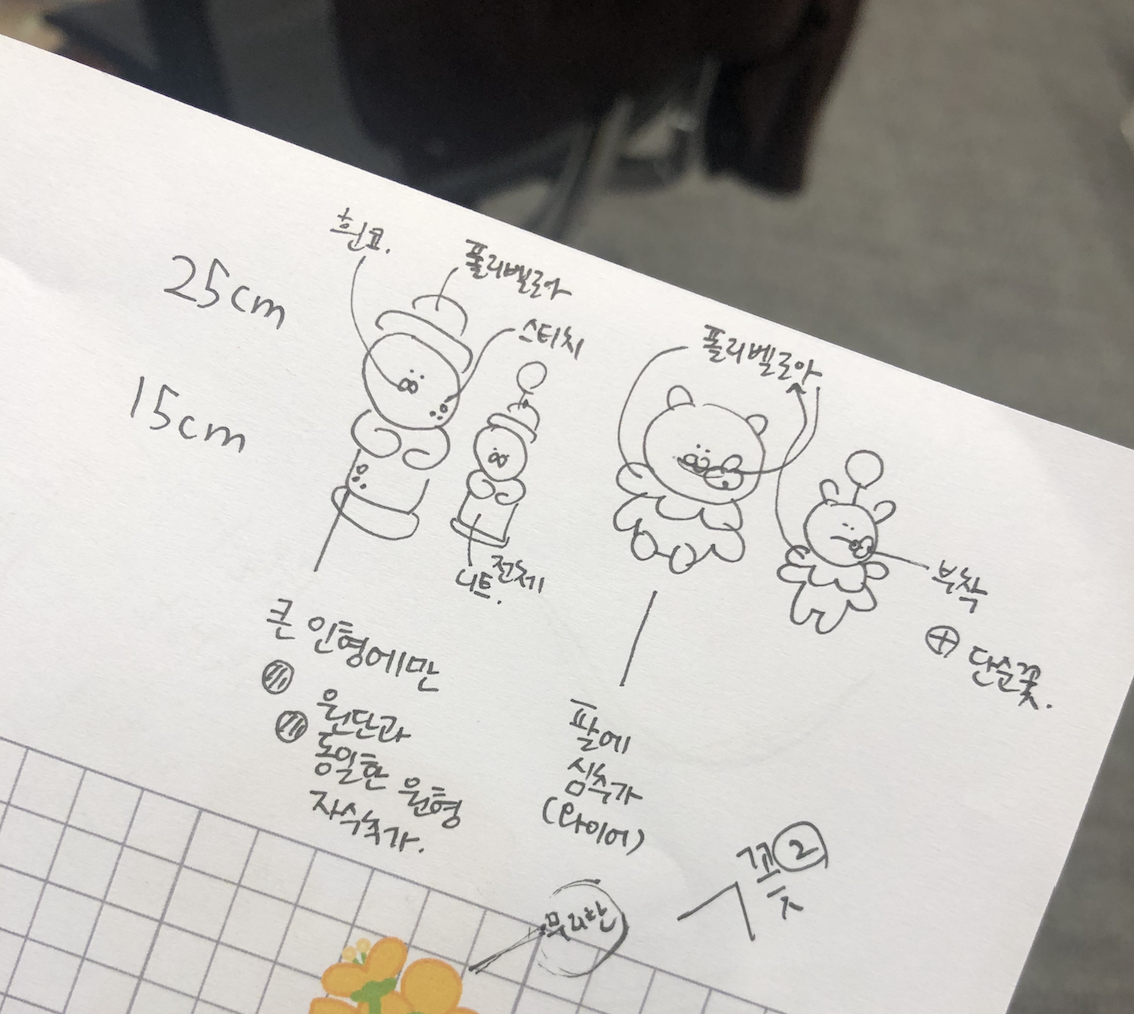 25cm
15cm
흰코.
폴리벨로아
스티치
전체
니트.
큰 인형에만
원단과
동일한 원형
자수추가.
폴리벨로아
부착
⊕ 단순꽃.
팔에
심추가
(와이어)
②